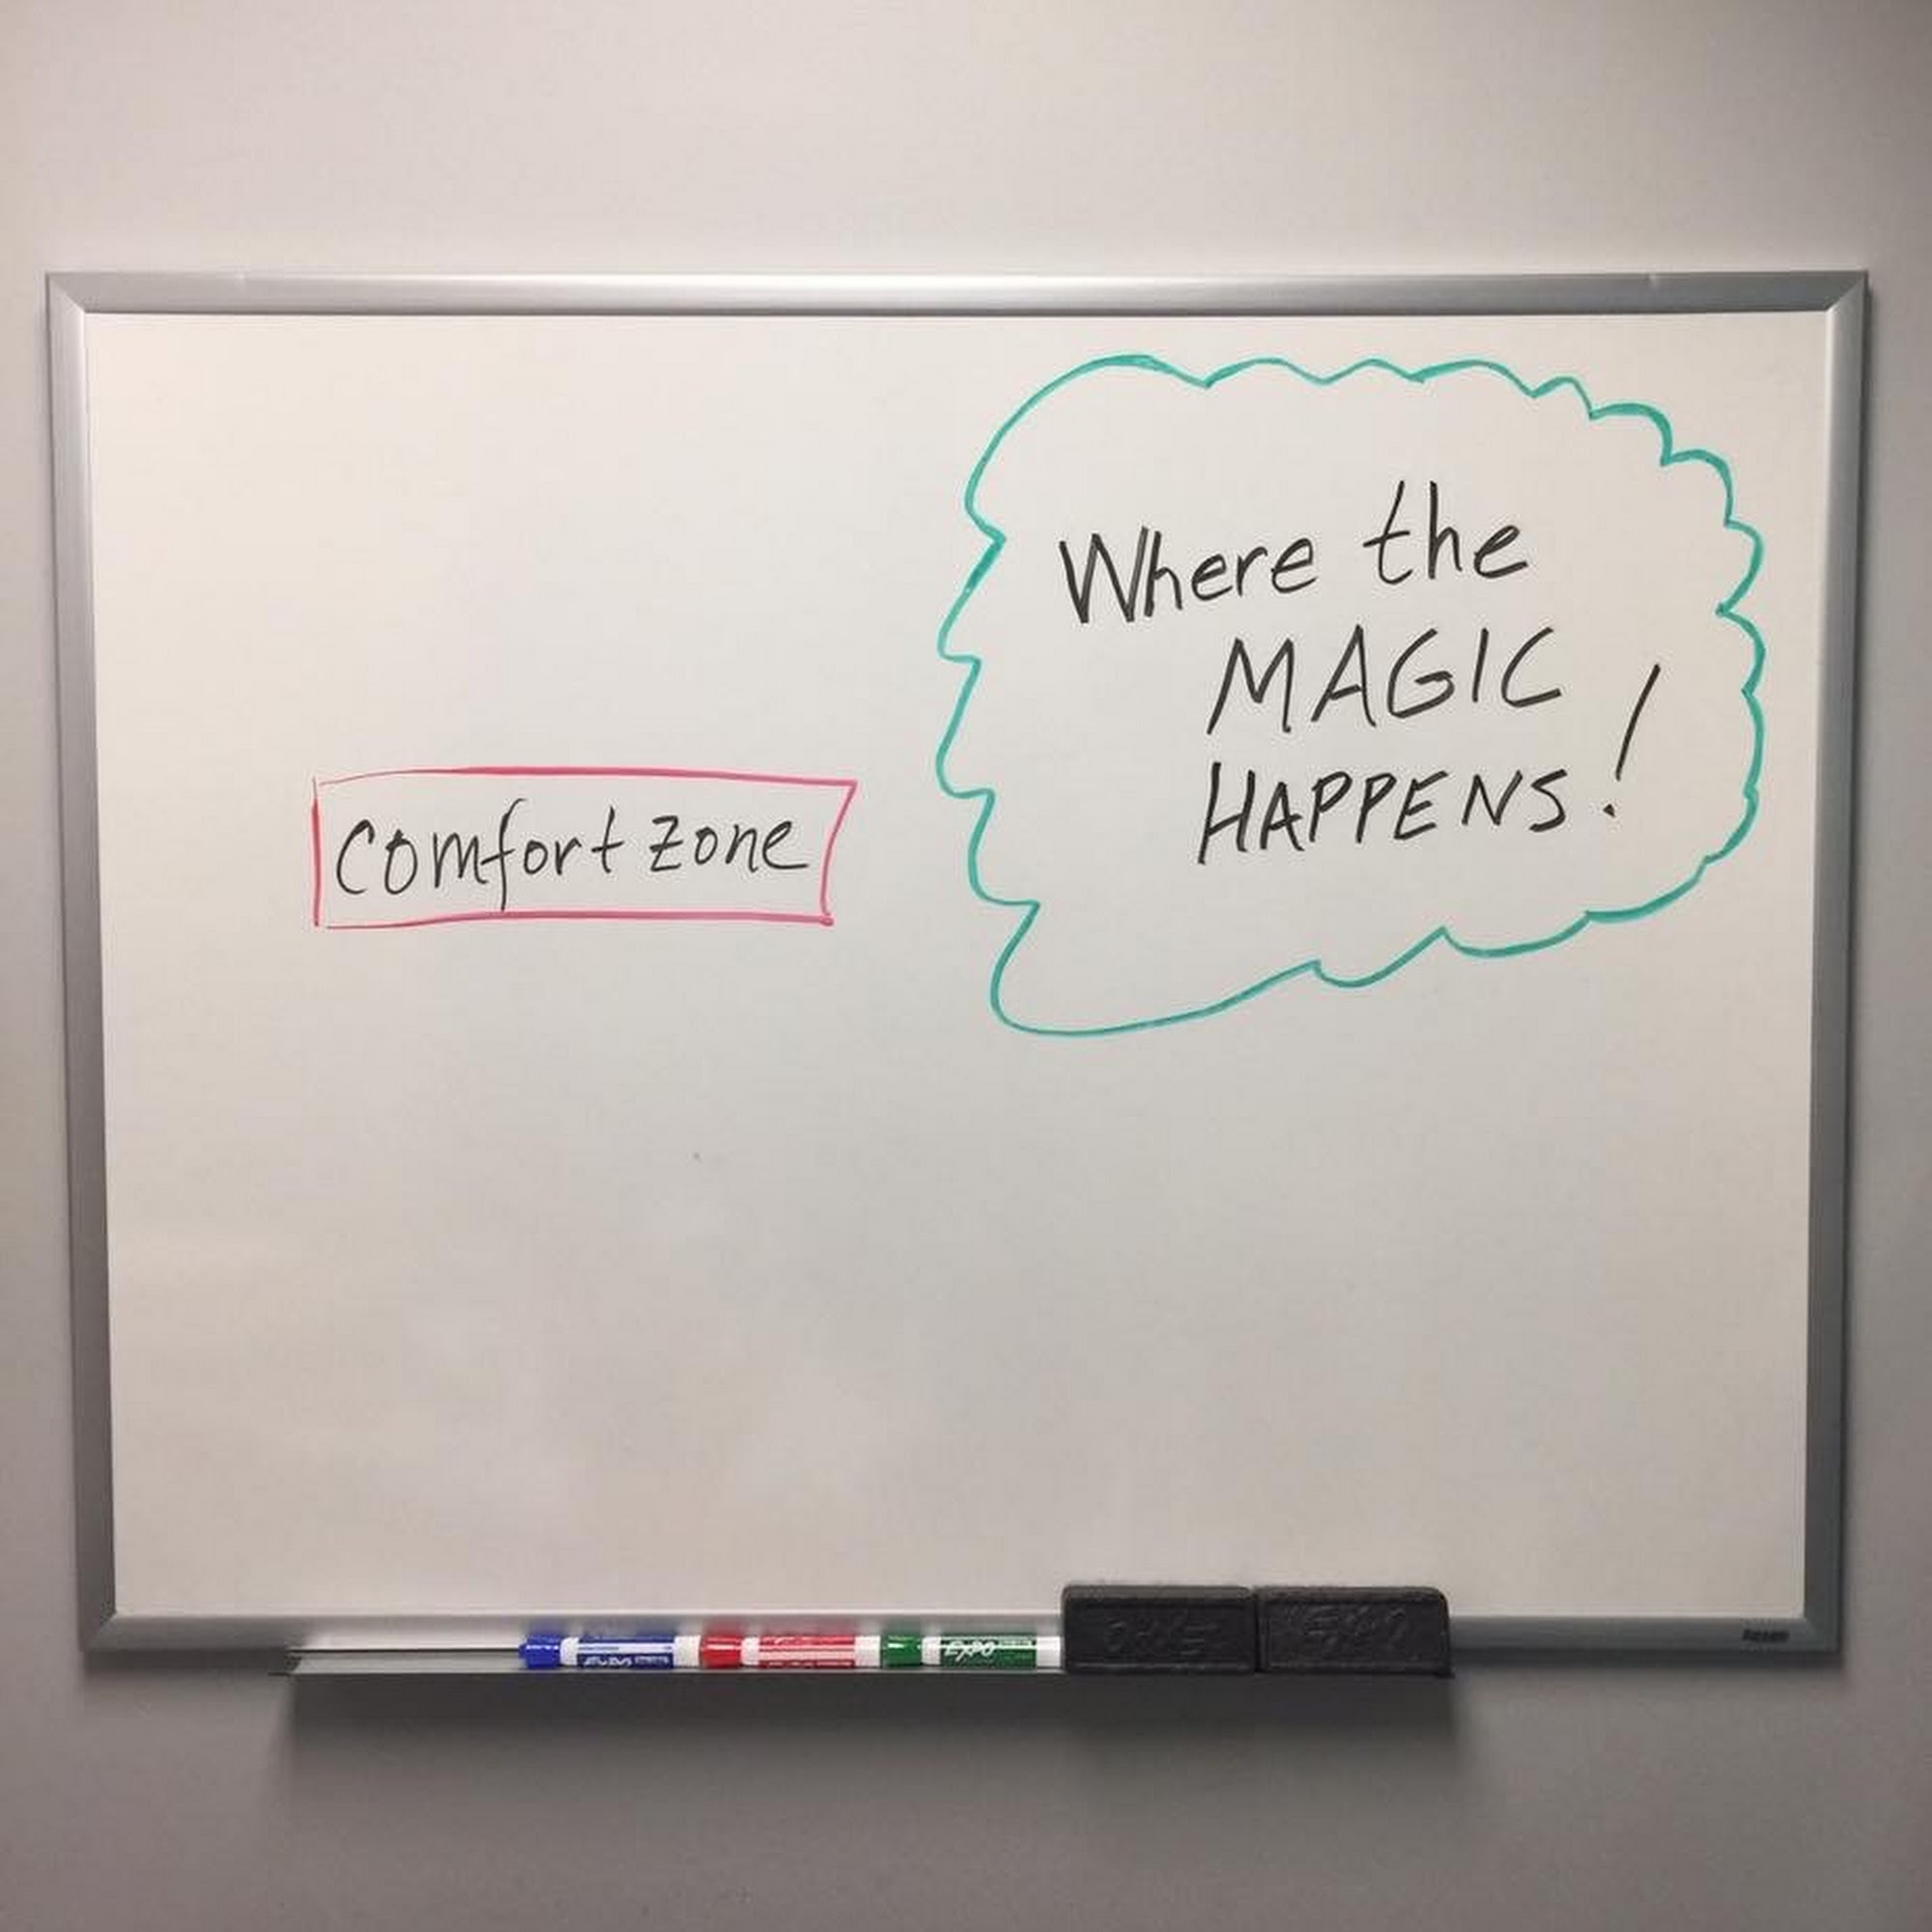 Where the
MAGIC
HAPPENS!
Comfort zone
EXPO